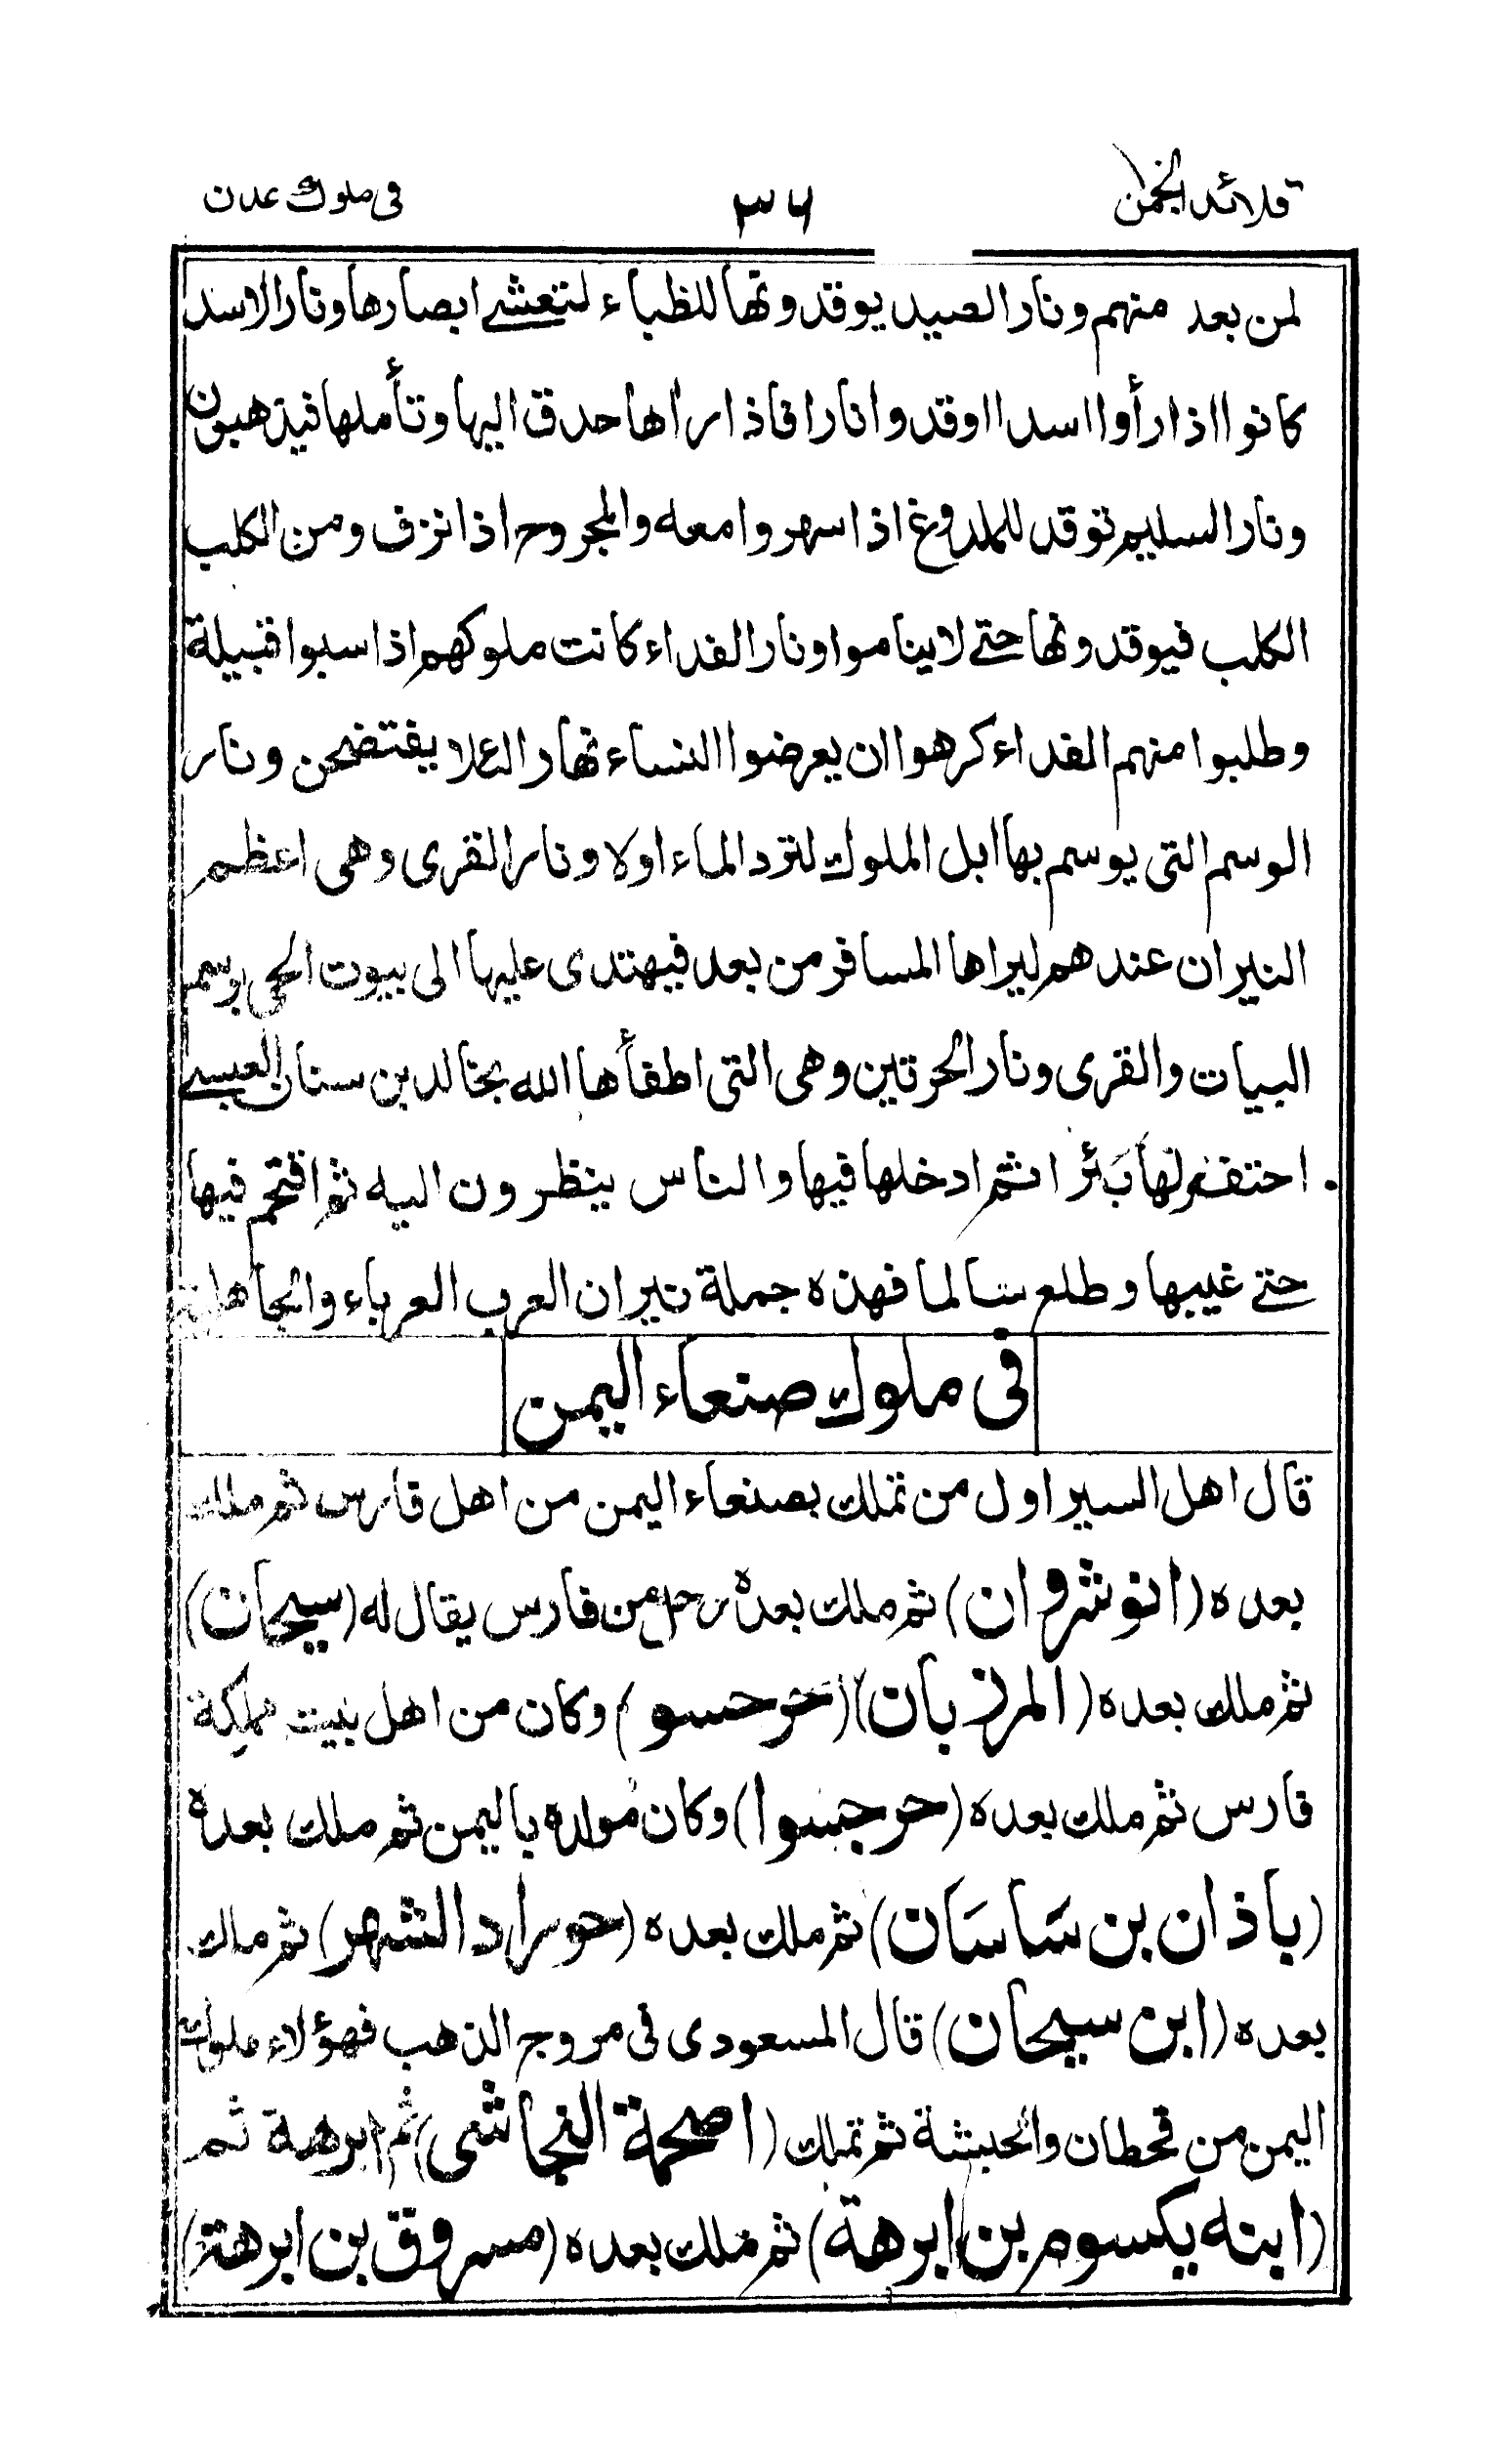 قلائد الجمن ٣٦ في ملوك عدن
لمن بعد منهم ونار الصيد يوقدونها للظباء لتغشى ابصارها ونار الاسد
كانوا اذا رأوا اسدا اوقدوا نارا فاذا راها حدق اليها وتأملها فيذهبون
ونار السليم توقد للملدوغ اذا سهروا معه والمجروح اذا نزف ومن الكلب
الكلب فيوقدونها حتى لا يناموا ونار الفداء كانت ملوكهم اذا سبوا قبيلة
وطلبوا منهم الفداء كرهوا ان يعرضوا النساء نهارا لئلا يفتضحن ونار
الوسم التى يوسم بها ابل الملوك لترد الماء اولا ونار القرى وهى اعظم
النيران عندهم ليراها المسافر من بعد فيهتدى عليها الى بيوت الحى برسم
البيات والقرى ونار الحرتين وهى التى اطفأها الله بخالد بن سنان العبسى
احتفر لها بئرا ثم ادخلها فيها والناس ينظرون اليه ثم اقتحم فيها
حتى غيبها وطلع سالما فهذه جملة نيران العرب العرباء والجاهلية
فى ملوك صنعاء اليمن
قال اهل السير اول من تملك بصنعاء اليمن من اهل فارس ثم ملك
بعده (انوشروان) ثم ملك بعده رجل من فارس يقال له (سيحان)
ثم ملك بعده (المرزبان) (خرحسو) وكان من اهل بيت مملكة
فارس ثم ملك بعده (حرجسوا) وكان مولده باليمن ثم ملك بعده
(باذان بن ساسان) ثم ملك بعده (حوراد الشهر) ثم ملك
بعده (ابن سيحان) قال المسعودى فى مروج الذهب فهؤلاء ملوك
اليمن من قحطان والحبشة ثم تملك (اصحمة النجاشى) ثم ابرهة ثم
(ابنه يكسوم بن ابرهة) ثم ملك بعده (مسروق بن ابرهة)